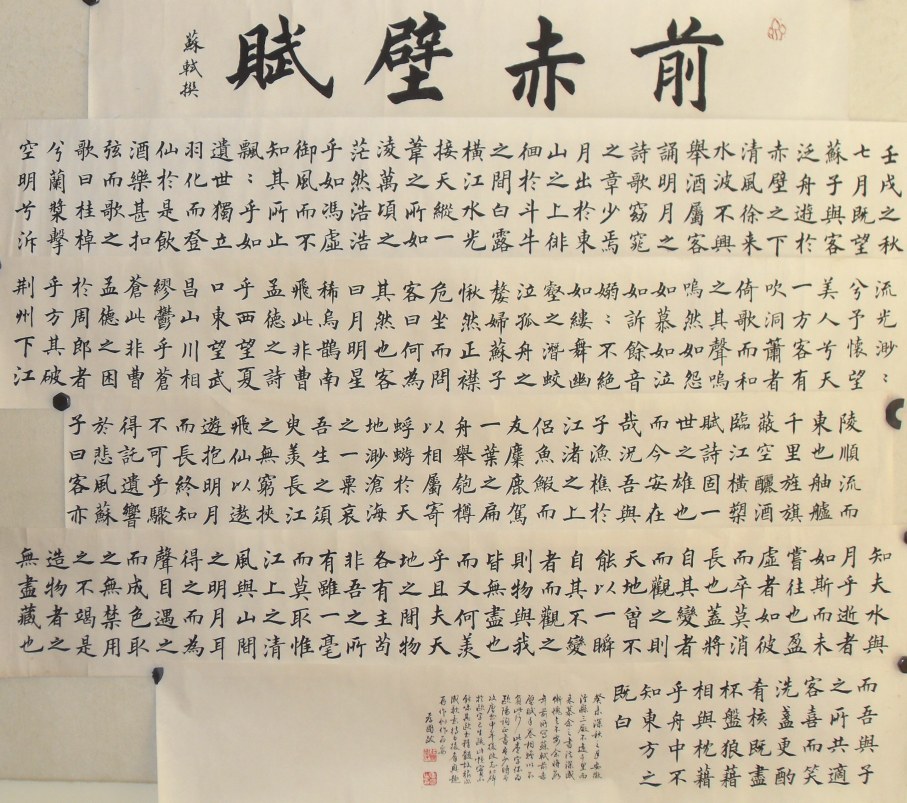 前赤壁賦
蘇軾撰
壬戌之秋
七月既望
蘇子與客
泛舟遊於
赤壁之下
清風徐來
水波不興
舉酒屬客
誦明月之
詩歌窈窕
之章少焉
月出於東
山之上徘
徊於斗牛
之間白露
橫江水光
接天縱一
葦之所如
淩萬頃之
茫然浩浩
乎如馮虛
御風而不
知其所止
飄:乎如
遺世獨立
羽化而登
仙於是飲
酒樂甚扣
弦而歌之
歌曰桂棹
兮蘭槳擊
空明兮泝
流光渺:
兮予懷望
美人兮天
一方客有
吹洞蕭者
倚歌而和
之其聲嗚
嗚然如怨
如慕如泣
如訴餘音
嫋:不絕
如縷舞幽
壑之潛蛟
泣孤舟之
嫠婦蘇子
愀然正襟
危坐而問
客曰何為
其然也客
曰月明星
稀烏鵲南
飛此非曹
孟德之詩
乎西望夏
口東望武
昌山川相
繆鬱乎蒼
蒼此非曹
孟德之困
於周郎者
乎方其破
荆州下江
陵順流而
東也舳艫
千里旌旗
蔽空釃酒
臨江橫槊
賦詩固一
世之雄也
而今安在
哉況吾與
子漁樵於
江渚之上
侶魚鰕而
友麋鹿駕
一葉之扁
舟舉匏樽
以相屬寄
蜉蝣於天
地渺滄海
之一粟哀
吾生之須
臾羨長江
之無窮挾
飛仙以遨
遊抱明月
而長終知
不可乎驟
得託遺響
於悲風蘇
子曰客亦
知夫水與
月乎逝者
如斯而未
嘗往也盈
虛者如彼
而卒莫消
長也蓋將
自其變者
而觀之則
天地曾不
能以一瞬
自其不變
者而觀之
則物與我
皆無盡也
而又何羨
乎且夫天
地之間物
各有主苟
非吾之所
有雖一毫
而莫取惟
江上之清
風與山間
之明月耳
得之而為
聲目遇之
而成色取
之無禁用
之不竭是
造物者之
無盡藏也
而吾與子
之所共適
客喜而笑
洗盞更酌
肴核既盡
杯盤狼藉
相與枕藉
乎舟中不
知東方之
既白